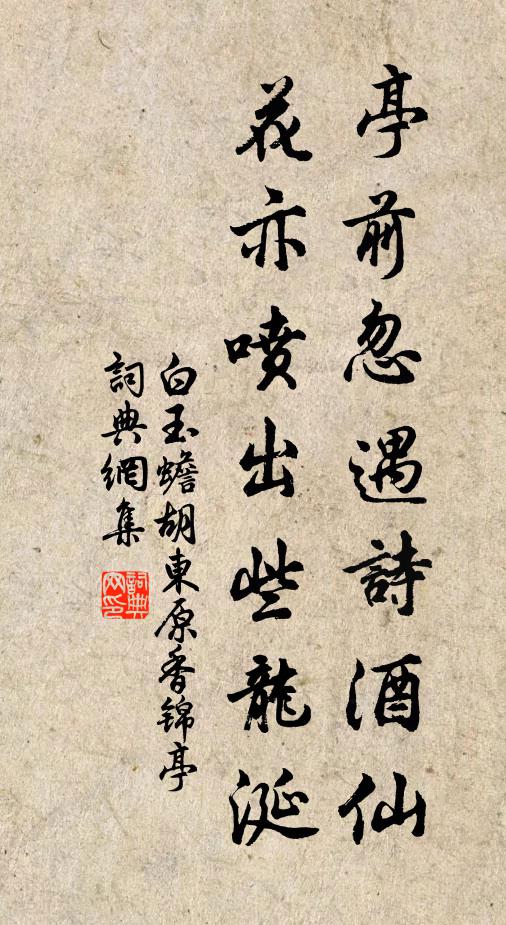 亭前忽遇詩酒仙
花亦噴出些龍涎
白玉蟾胡東原香锦亭
詞典網集
詞典网印